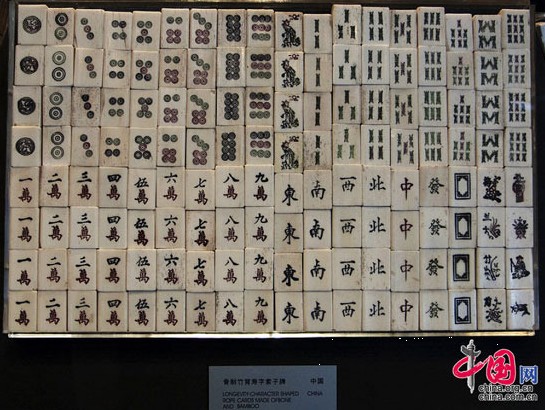 一萬 二萬 三萬 四萬 伍萬 六萬 七萬 八萬 九萬 東 南 西 北 中 發
一萬 二萬 三萬 四萬 伍萬 六萬 七萬 八萬 九萬 東 南 西 北 中 發
一萬 二萬 三萬 四萬 伍萬 六萬 七萬 八萬 九萬 東 南 西 北 中 發
一萬 二萬 三萬 四萬 伍萬 六萬 七萬 八萬 九萬 東 南 西 北 中 發
骨制竹背寿字索子牌 中国
LONGEVITY-CHARACTER SHAPED CHINA
ROPE CARDS MADE OF BONE
AND BAMBOO
中国网
china.org.cn
china.com.cn